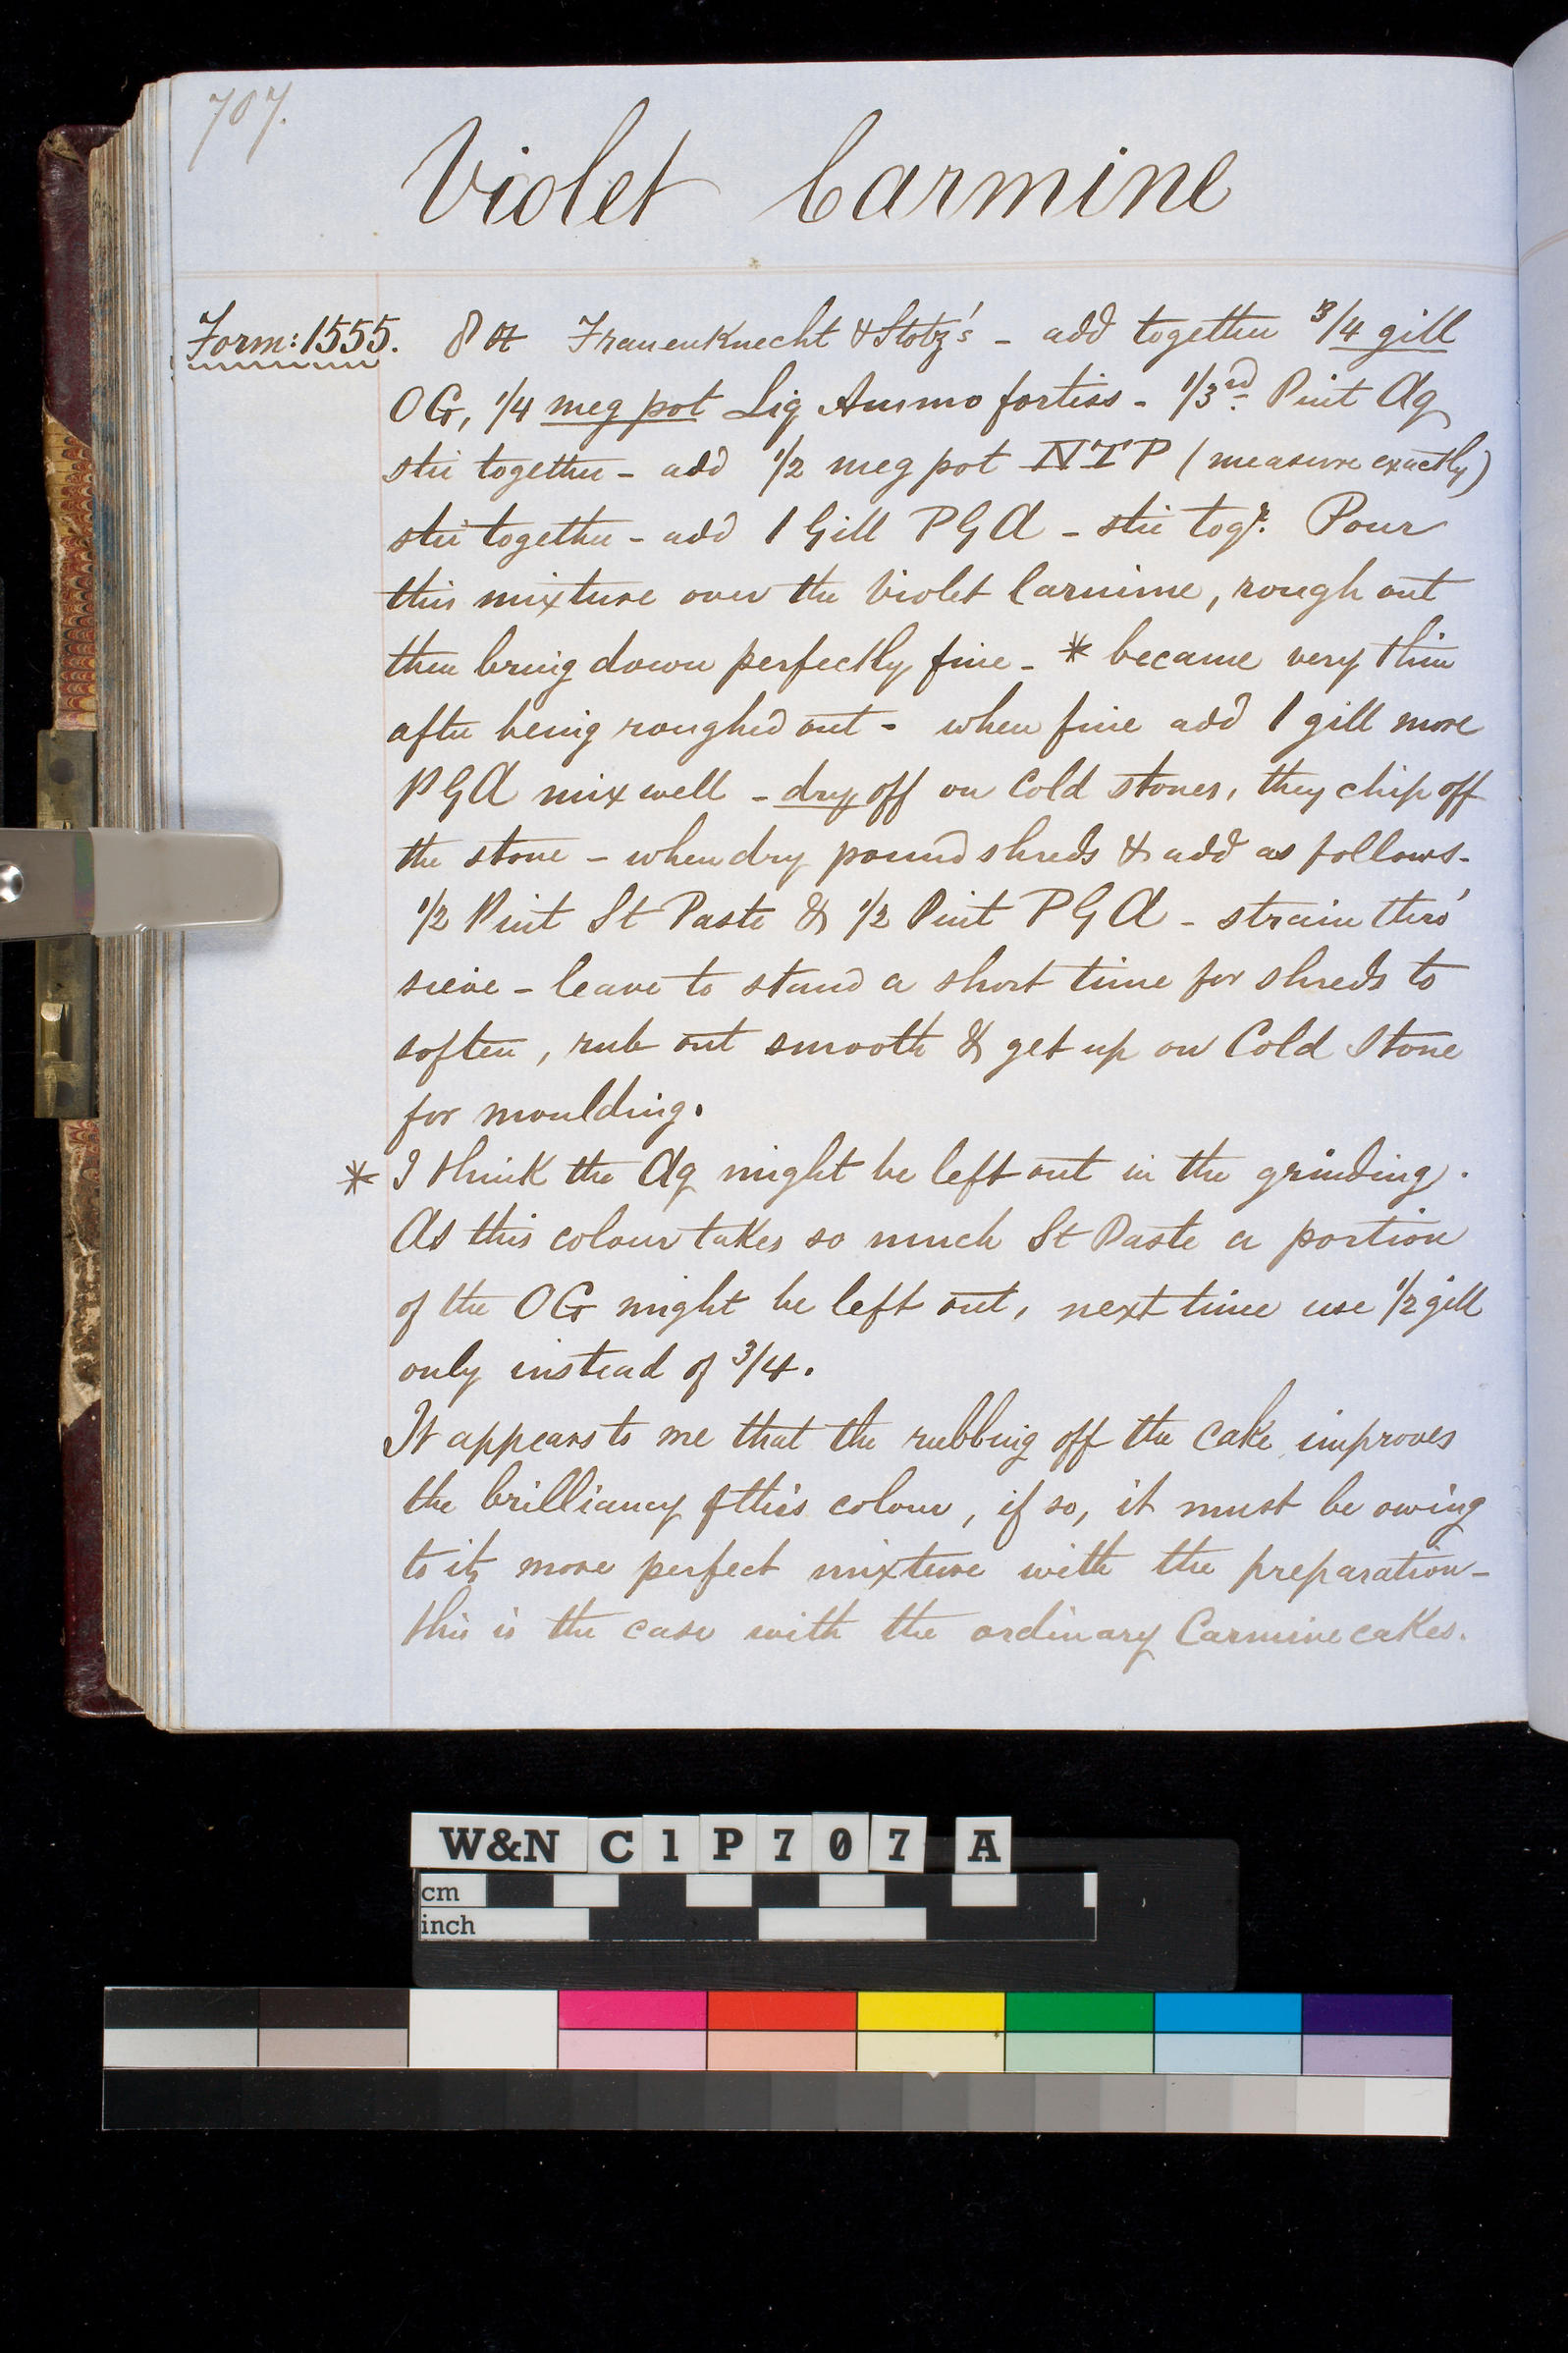 707.
Violet Carmine
Form: 1555. 8 oz Frauenknecht & Stotz's - add together 3/4 gill
OG, 1/4 meg pot Liq Ammo fortiss - 1/3rd Pint Aq
stir together - add 1/2 meg pot NTP (measure exactly)
stir together - add 1 Gill PGA - stir togr. Pour
this mixture over the Violet Carmine, rough out
then bring down perfectly fine - * became very thin
after being roughed out - when fine add 1 gill more
PGA mix well - dry off on Cold stones, they chip off
the stone - when dry pound shreds & add as follows -
1/2 Pint St Paste & 1/2 Pint PGA - strain thro'
sieve - leave to stand a short time for shreds to
soften, rub out smooth & get up on Cold Stone
for moulding.
* I think the Aq might be left out in the grinding.
As this colour takes so much St Paste a portion
of the OG might be left out, next time use 1/2 gill
only instead of 3/4.
It appears to me that the rubbing off the cake improves
the brilliancy of this colour, if so, it must be owing
to its more perfect mixture with the preparation -
this is the case with the ordinary Carmine cakes.
W&N C1P707 A
cm
inch